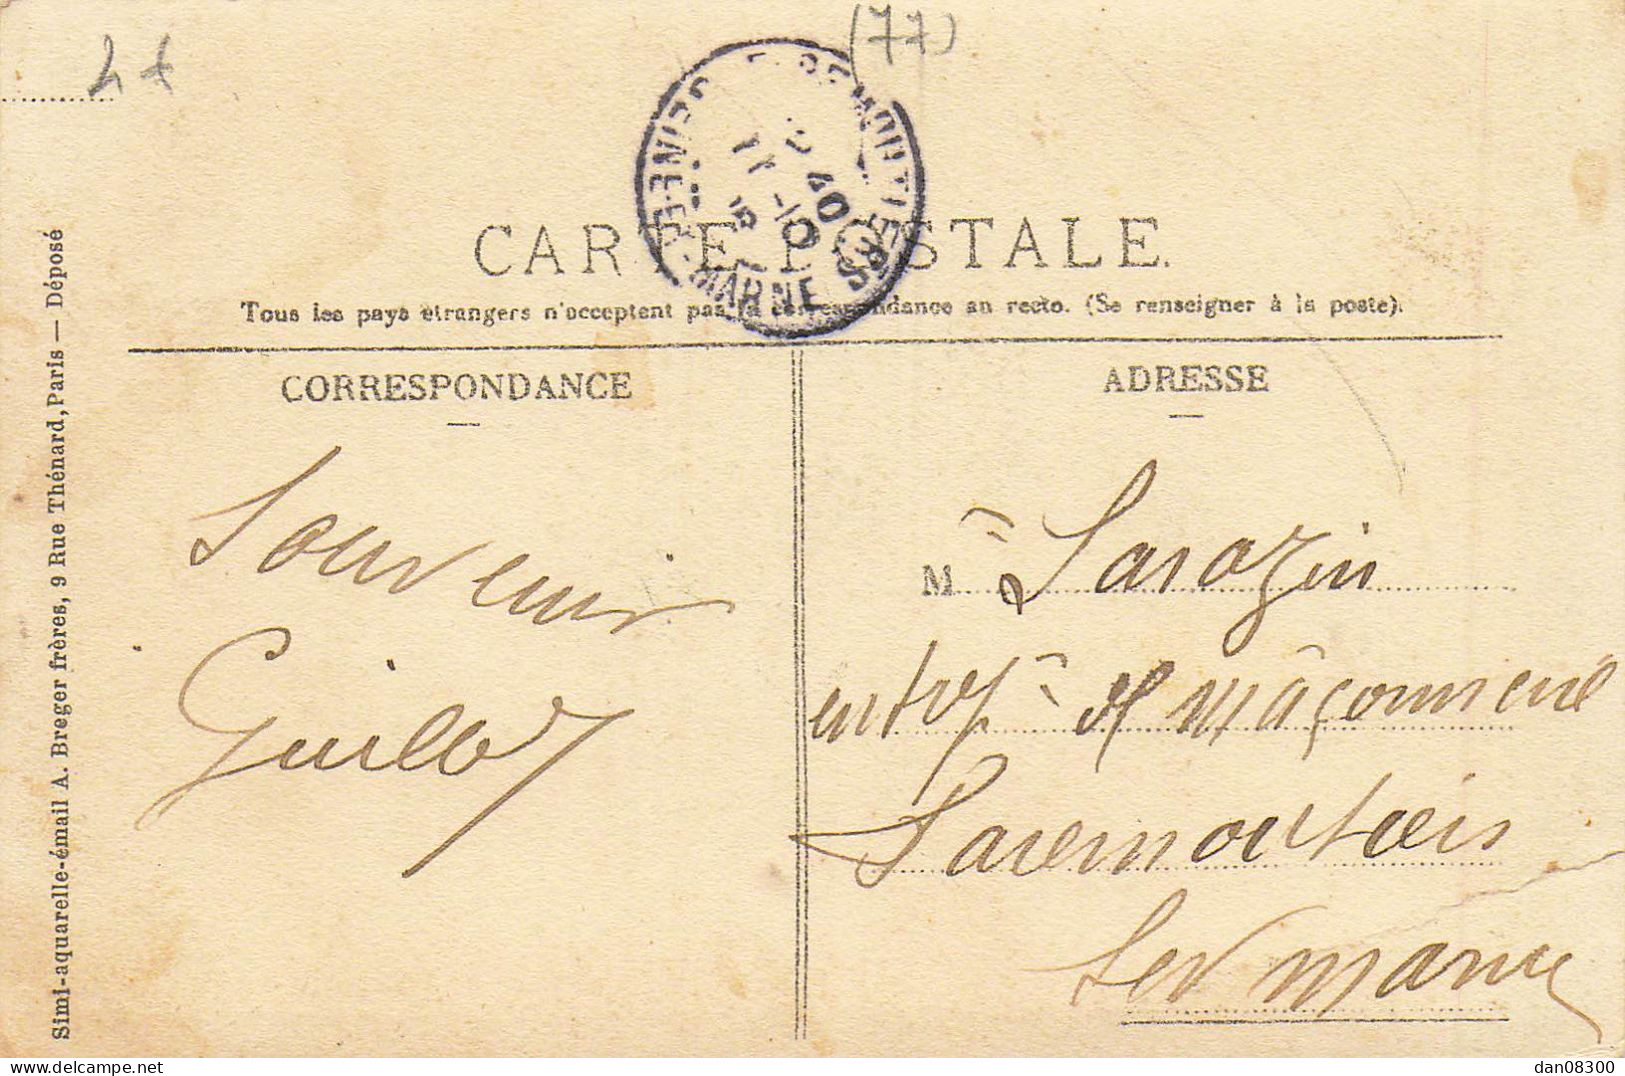 4 f
(77)
FAREMOUTIERS
SEINE-ET-MARNE
11 -10
CARTE POSTALE.
Tous les pays étrangers n'acceptent pas la correspondance au recto. (Se renseigner à la poste).
CORRESPONDANCE
Souvenir
Guillo
ADRESSE
M r Sarazin
entrp r de mâçonnerie
Faremoutiers
Sei marne
Simi-aquarelle-émail A. Breger frères, 9 Rue Thénard, Paris — Déposé
dan08300